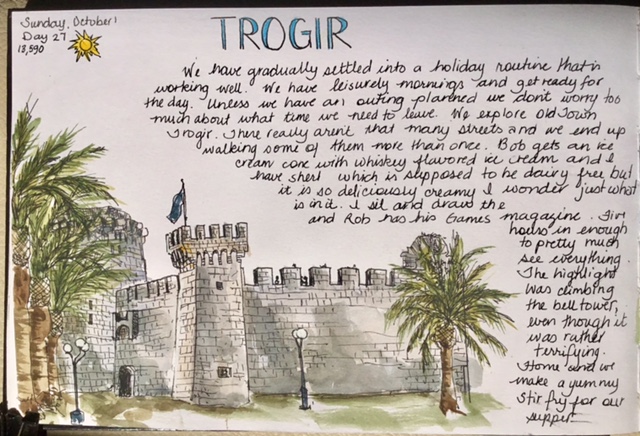 Sunday, October 1
Day 27
18,590
TROGIR
We have gradually settled into a holiday routine that is
working well. We have leisurely mornings and get ready for
the day. Unless we have an outing planned we don't worry too
much about what time we need to leave. We explore Old Town
Trogir. There really aren't that many streets and we end up
walking some of them more than once. Bob gets an ice
cream cone with whiskey flavored ice cream and I
have sherb which is supposed to be dairy free but
it is so deliciously creamy I wonder just what
is in it. I sit and draw the
and Rob has his Games magazine.
hours in enough
to pretty much
see everything.
The highlight
was climbing
the bell tower,
even though it
was rather
terrifying.
Home and we
make a yummy
stir fry for our
supper